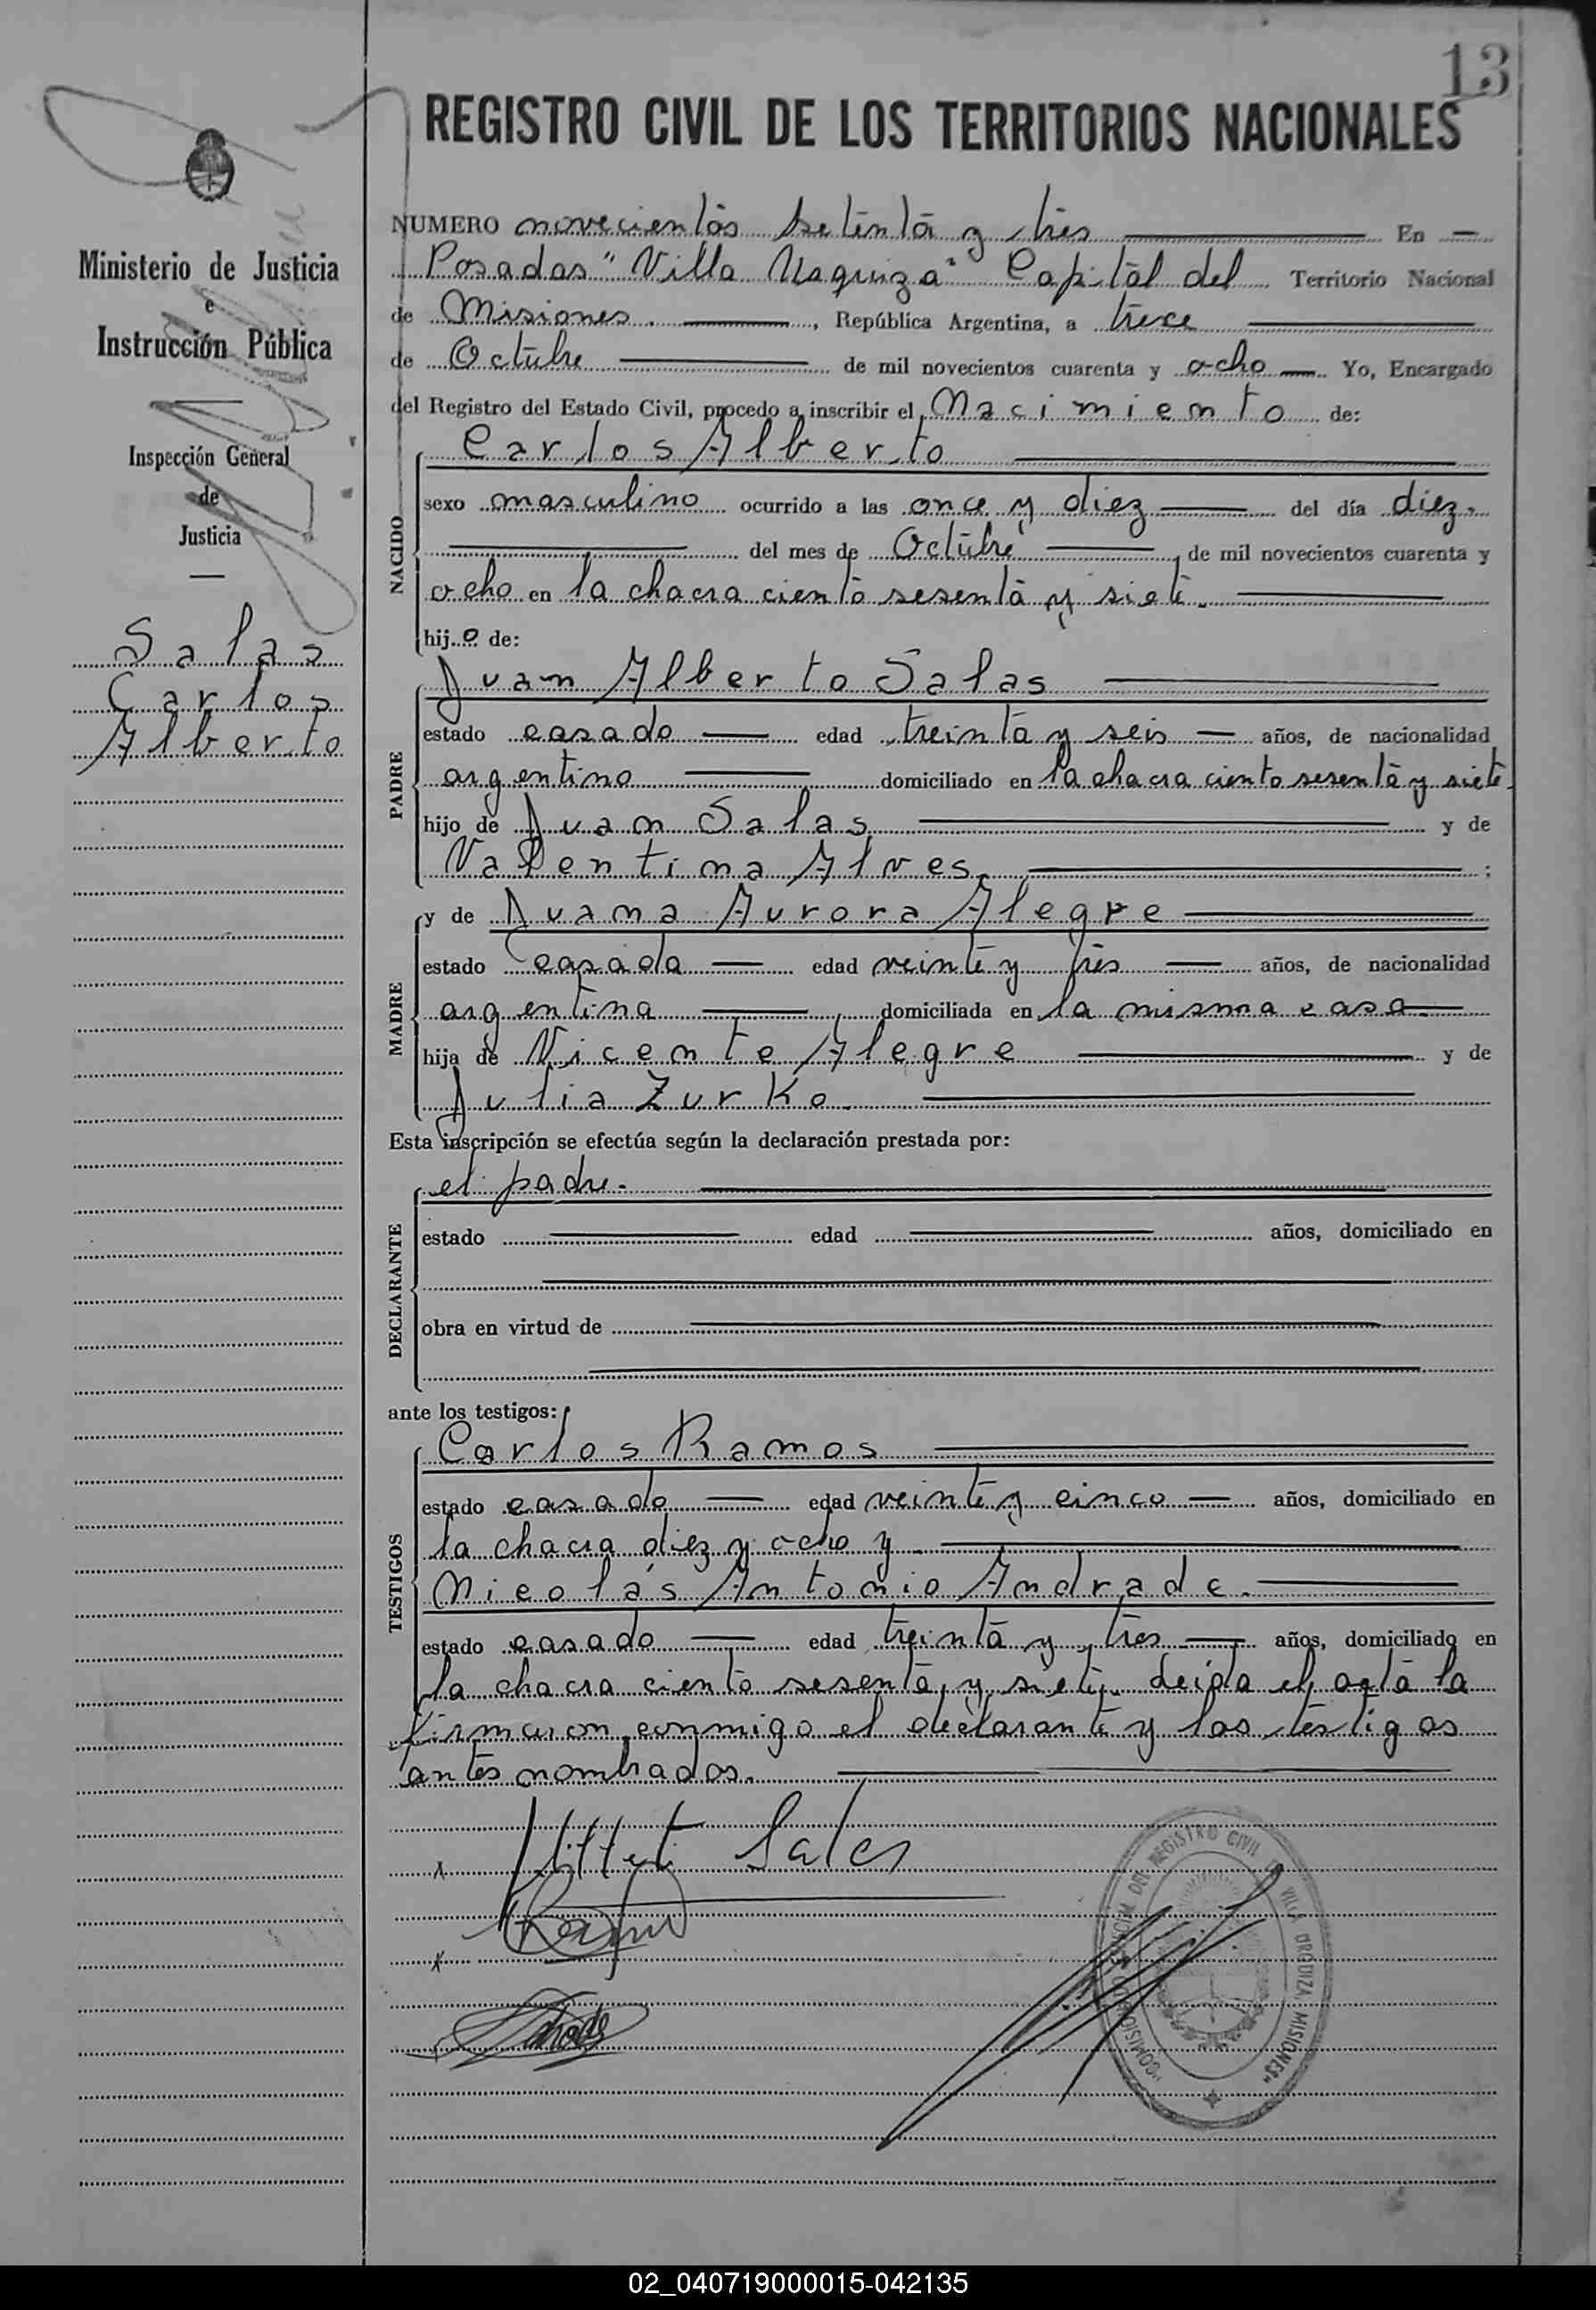 13
REGISTRO CIVIL DE LOS TERRITORIOS NACIONALES
Ministerio de Justicia
e
Instrucción Pública
Inspección General
de
Justicia
Salas
Carlos
Alberto
NUMERO novecientos setenta y tres En
Posadas "Villa Urquiza" Capital del Territorio Nacional
de Misiones. , República Argentina, a trece
de Octubre de mil novecientos cuarenta y ocho Yo, Encargado
del Registro del Estado Civil, procedo a inscribir el Nacimiento de:
Carlos Alberto
NACIDO
sexo masculino ocurrido a las once y diez del día diez.
del mes de Octubre de mil novecientos cuarenta y
ocho en la chacra ciento sesenta y siete.
hijo de:
Juan Alberto Salas
PADRE
estado casado edad treinta y seis años, de nacionalidad
argentino domiciliado en la chacra ciento sesenta y siete.
hijo de Juan Salas y de
Valentina Alves. ;
MADRE
y de Juana Aurora Alegre
estado casada edad veinte y tres años, de nacionalidad
argentina domiciliada en la misma casa.
hija de Vicente Alegre y de
Julia Zurko.
Esta inscripción se efectúa según la declaración prestada por:
el padre.
DECLARANTE
estado edad años, domiciliado en
obra en virtud de
ante los testigos:
Carlos Ramos
TESTIGOS
estado casado edad veinte y cinco años, domiciliado en
la chacra diez y ocho y
Nicolás Antonio Andrade.
estado casado edad treinta y tres años, domiciliado en
la chacra ciento sesenta y siete. Leída el acta la
firmaron conmigo el declarante y los testigos
antes nombrados.
x Salas
x
DEL REGISTRO CIVIL DE VILLA URQUIZA MISIONES
02_040719000015-042135